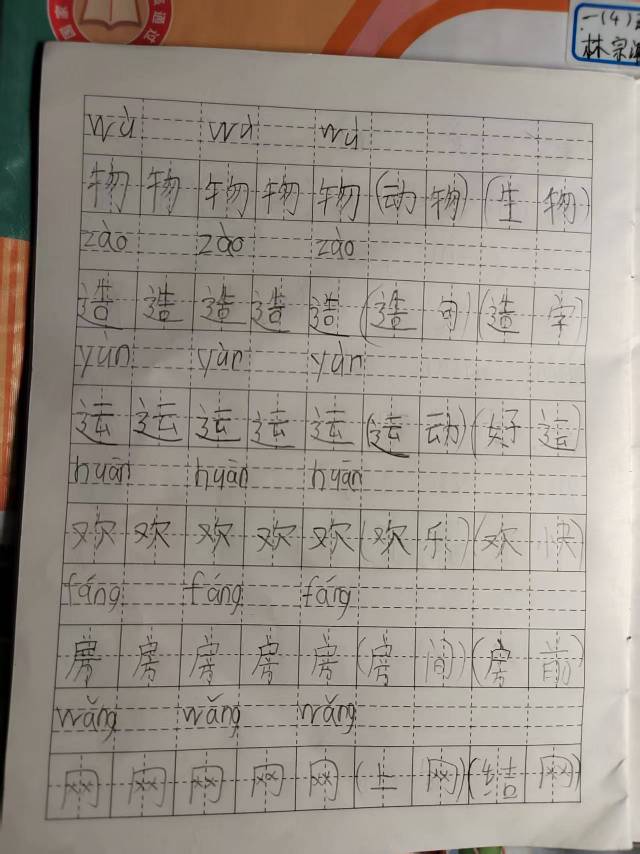 一(4)
林宗
wù wù wù
物 物 物 物 物 (动 物) (生 物)
zào zào zào
造 造 造 造 造 (造 句) (造 字)
yùn yùn yùn
运 运 运 运 运 (运 动) (好 运)
huān huān huān
欢 欢 欢 欢 欢 (欢 乐) (欢 快)
fáng fáng fáng
房 房 房 房 房 (房 间) (房 前)
wǎng wǎng wǎng
网 网 网 网 网 (上 网) (结 网)